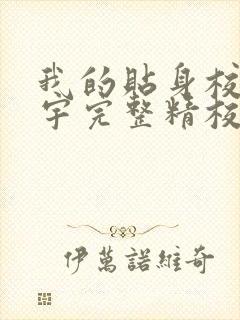 我的貼身校
宇完整精校
伊萬諾維奇